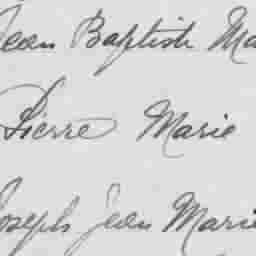 Jean Baptiste Ma
Pierre Marie
Joseph Jean Marie